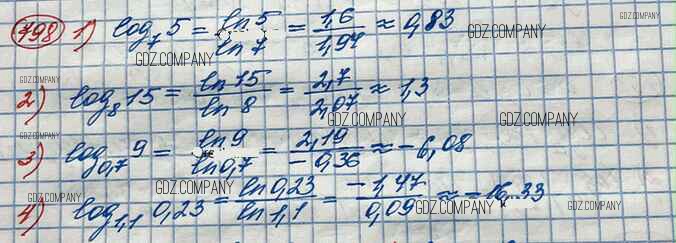 798 1) log₇ 5 = ln 5 / ln 7 = 1,6 / 1,94 ≈ 0,83
2) log₈ 15 = ln 15 / ln 8 = 2,7 / 2,07 ≈ 1,3
3) log₀,₇ 9 = ln 9 / ln 0,7 = 2,19 / -0,36 ≈ -6,08
4) log₁,₁ 0,23 = ln 0,23 / ln 1,1 = -1,47 / 0,09 ≈ -16,33
GDZ.COMPANY GDZ.COMPANY GDZ.COMPANY GDZ.COMPANY
GDZ.COMPANY GDZ.COMPANY GDZ.COMPANY
GDZ.COMPANY GDZ.COMPANY GDZ.COMPANY
GDZ.COMPANY GDZ.COMPANY GDZ.COMPANY GDZ.COMPANY